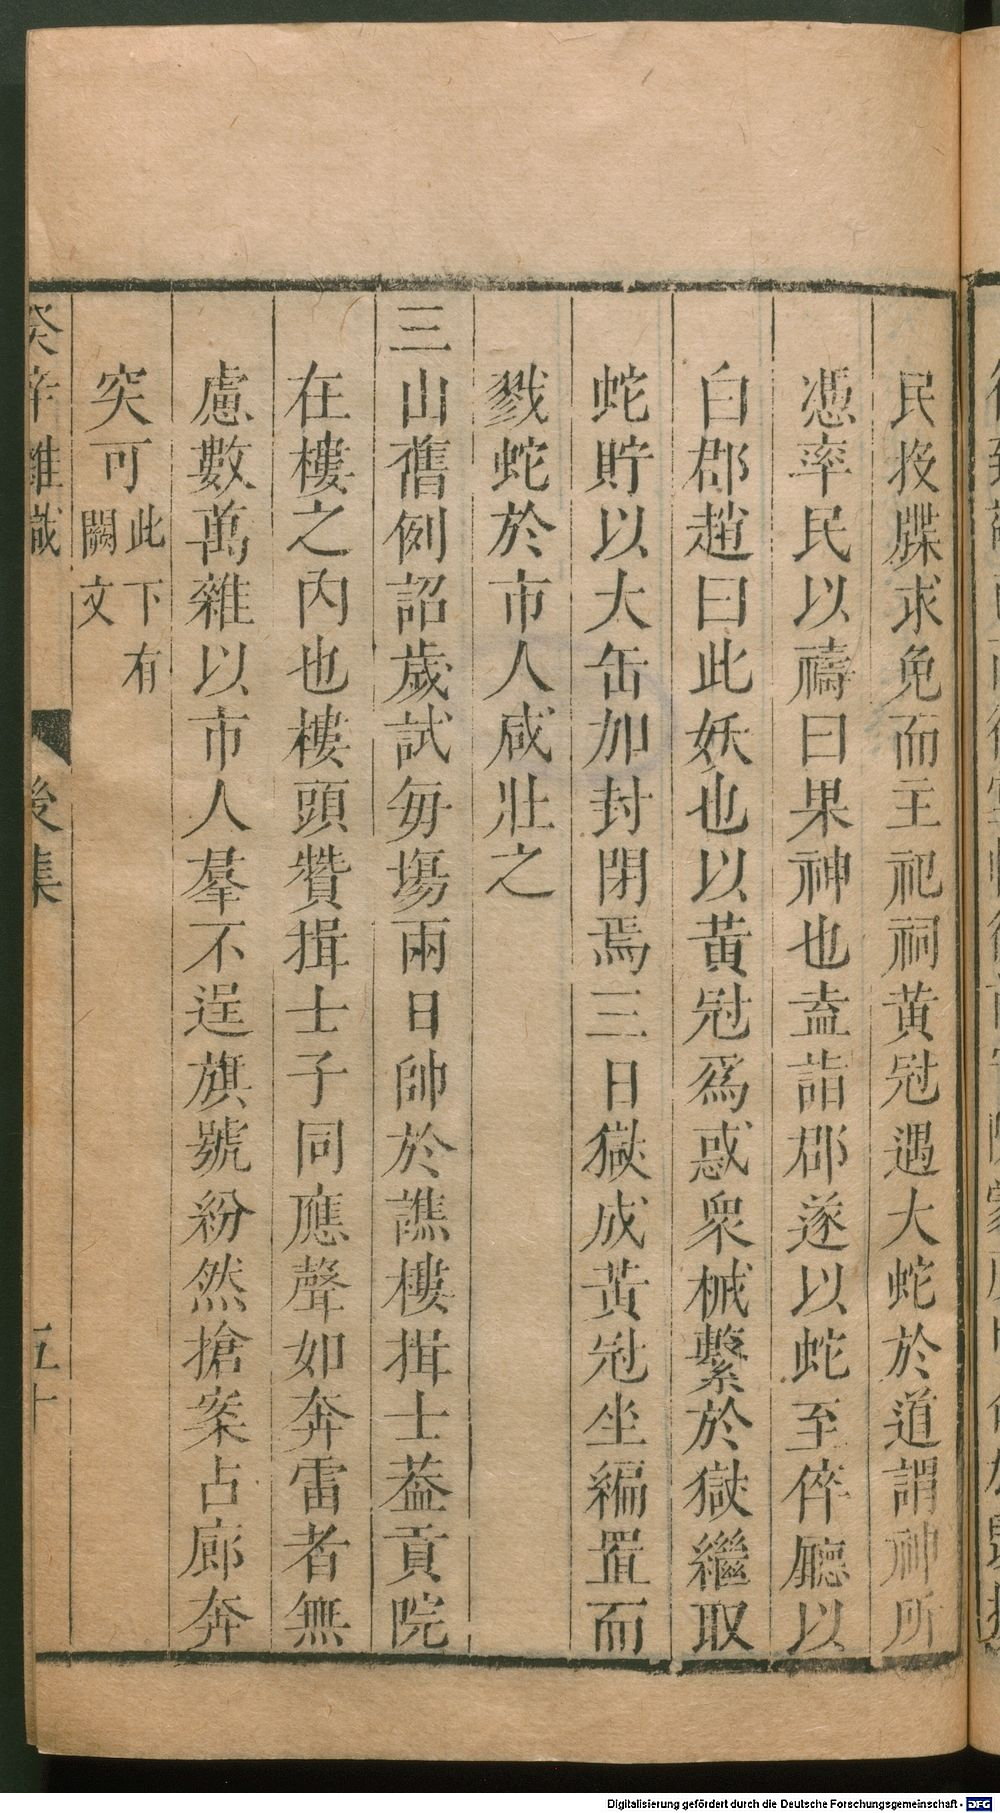 民投牒求免而主祀祠黄冠遇大蛇於道謂神所
憑率民以禱曰果神也盍詣郡遂以蛇至倅廳以
白郡趙曰此妖也以黄冠爲惑衆械繫於獄繼取
蛇貯以大缶加封閉焉三日獄成黄冠坐編置而
戮蛇於市人咸壯之
三山舊例詔歲試毎塲兩日帥於譙樓揖士葢貢院
在樓之内也樓頭贊揖士子同應聲如奔雷者無
慮數萬雜以市人羣不逞旗號紛然搶案占廊奔
突可此下有闕文
癸辛雜識 後集 五十
Digitalisierung gefördert durch die Deutsche Forschungsgemeinschaft - DFG